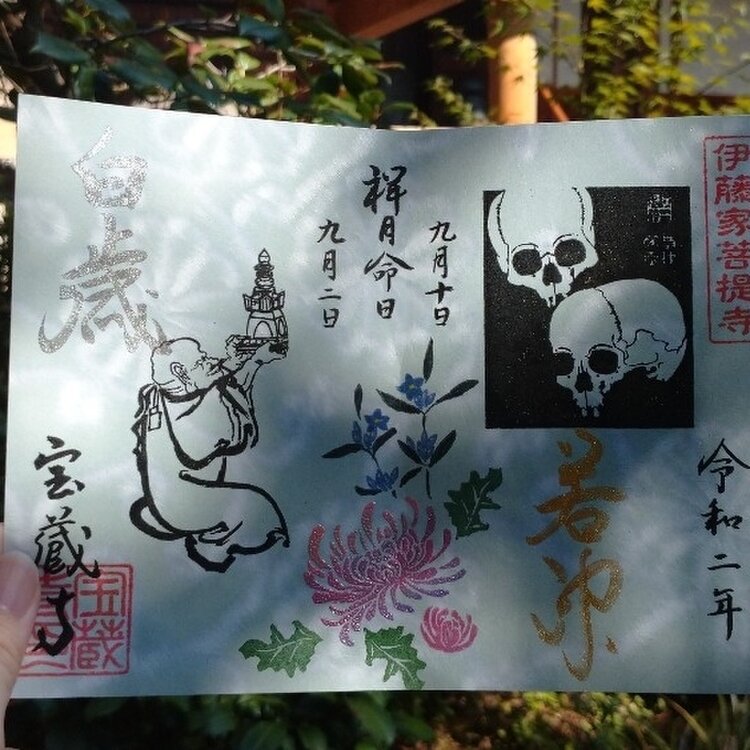 伊藤家菩提寺
令和二年
若冲
九月十日
祥月命日
九月二日
白歳
宝蔵寺
宝蔵